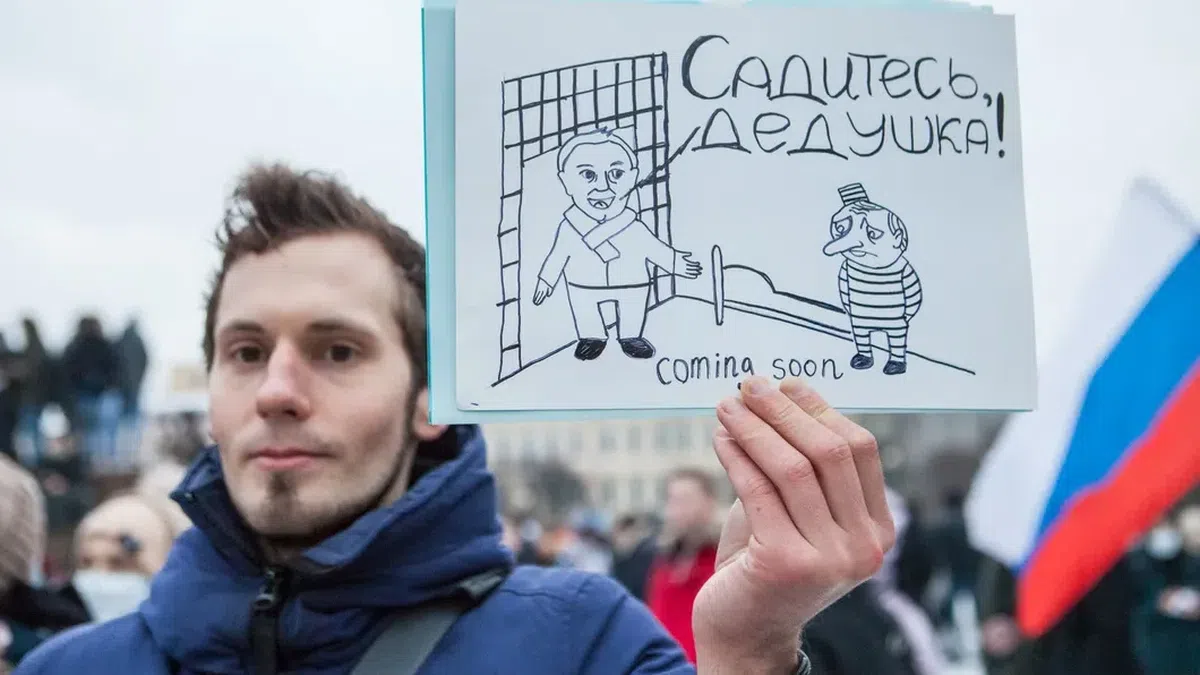 Садитесь,
дедушка!
coming soon